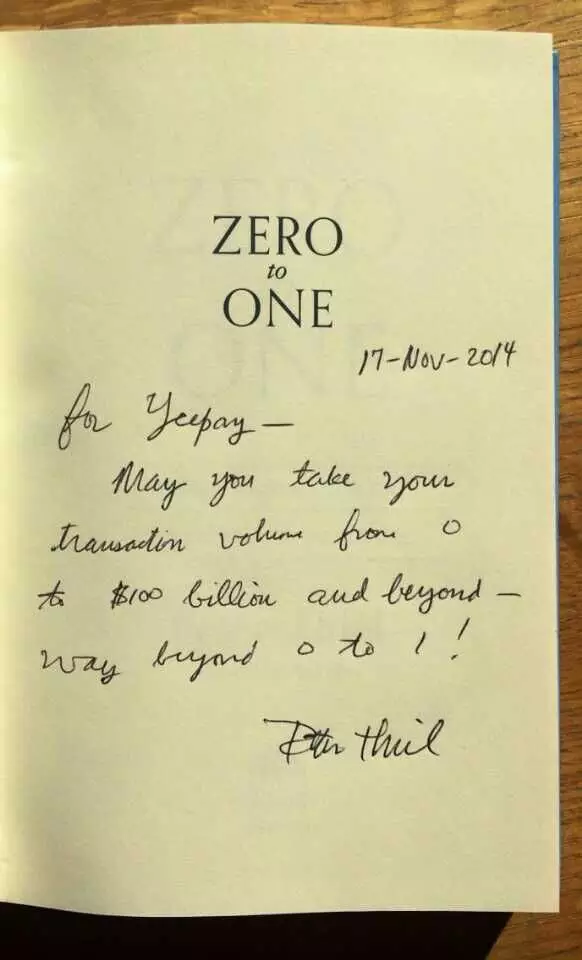 ZERO
to
ONE
17-Nov-2014
for Yeepay —
May you take your
transaction volume from 0
to $100 billion and beyond —
way beyond 0 to 1!
Peter Thiel